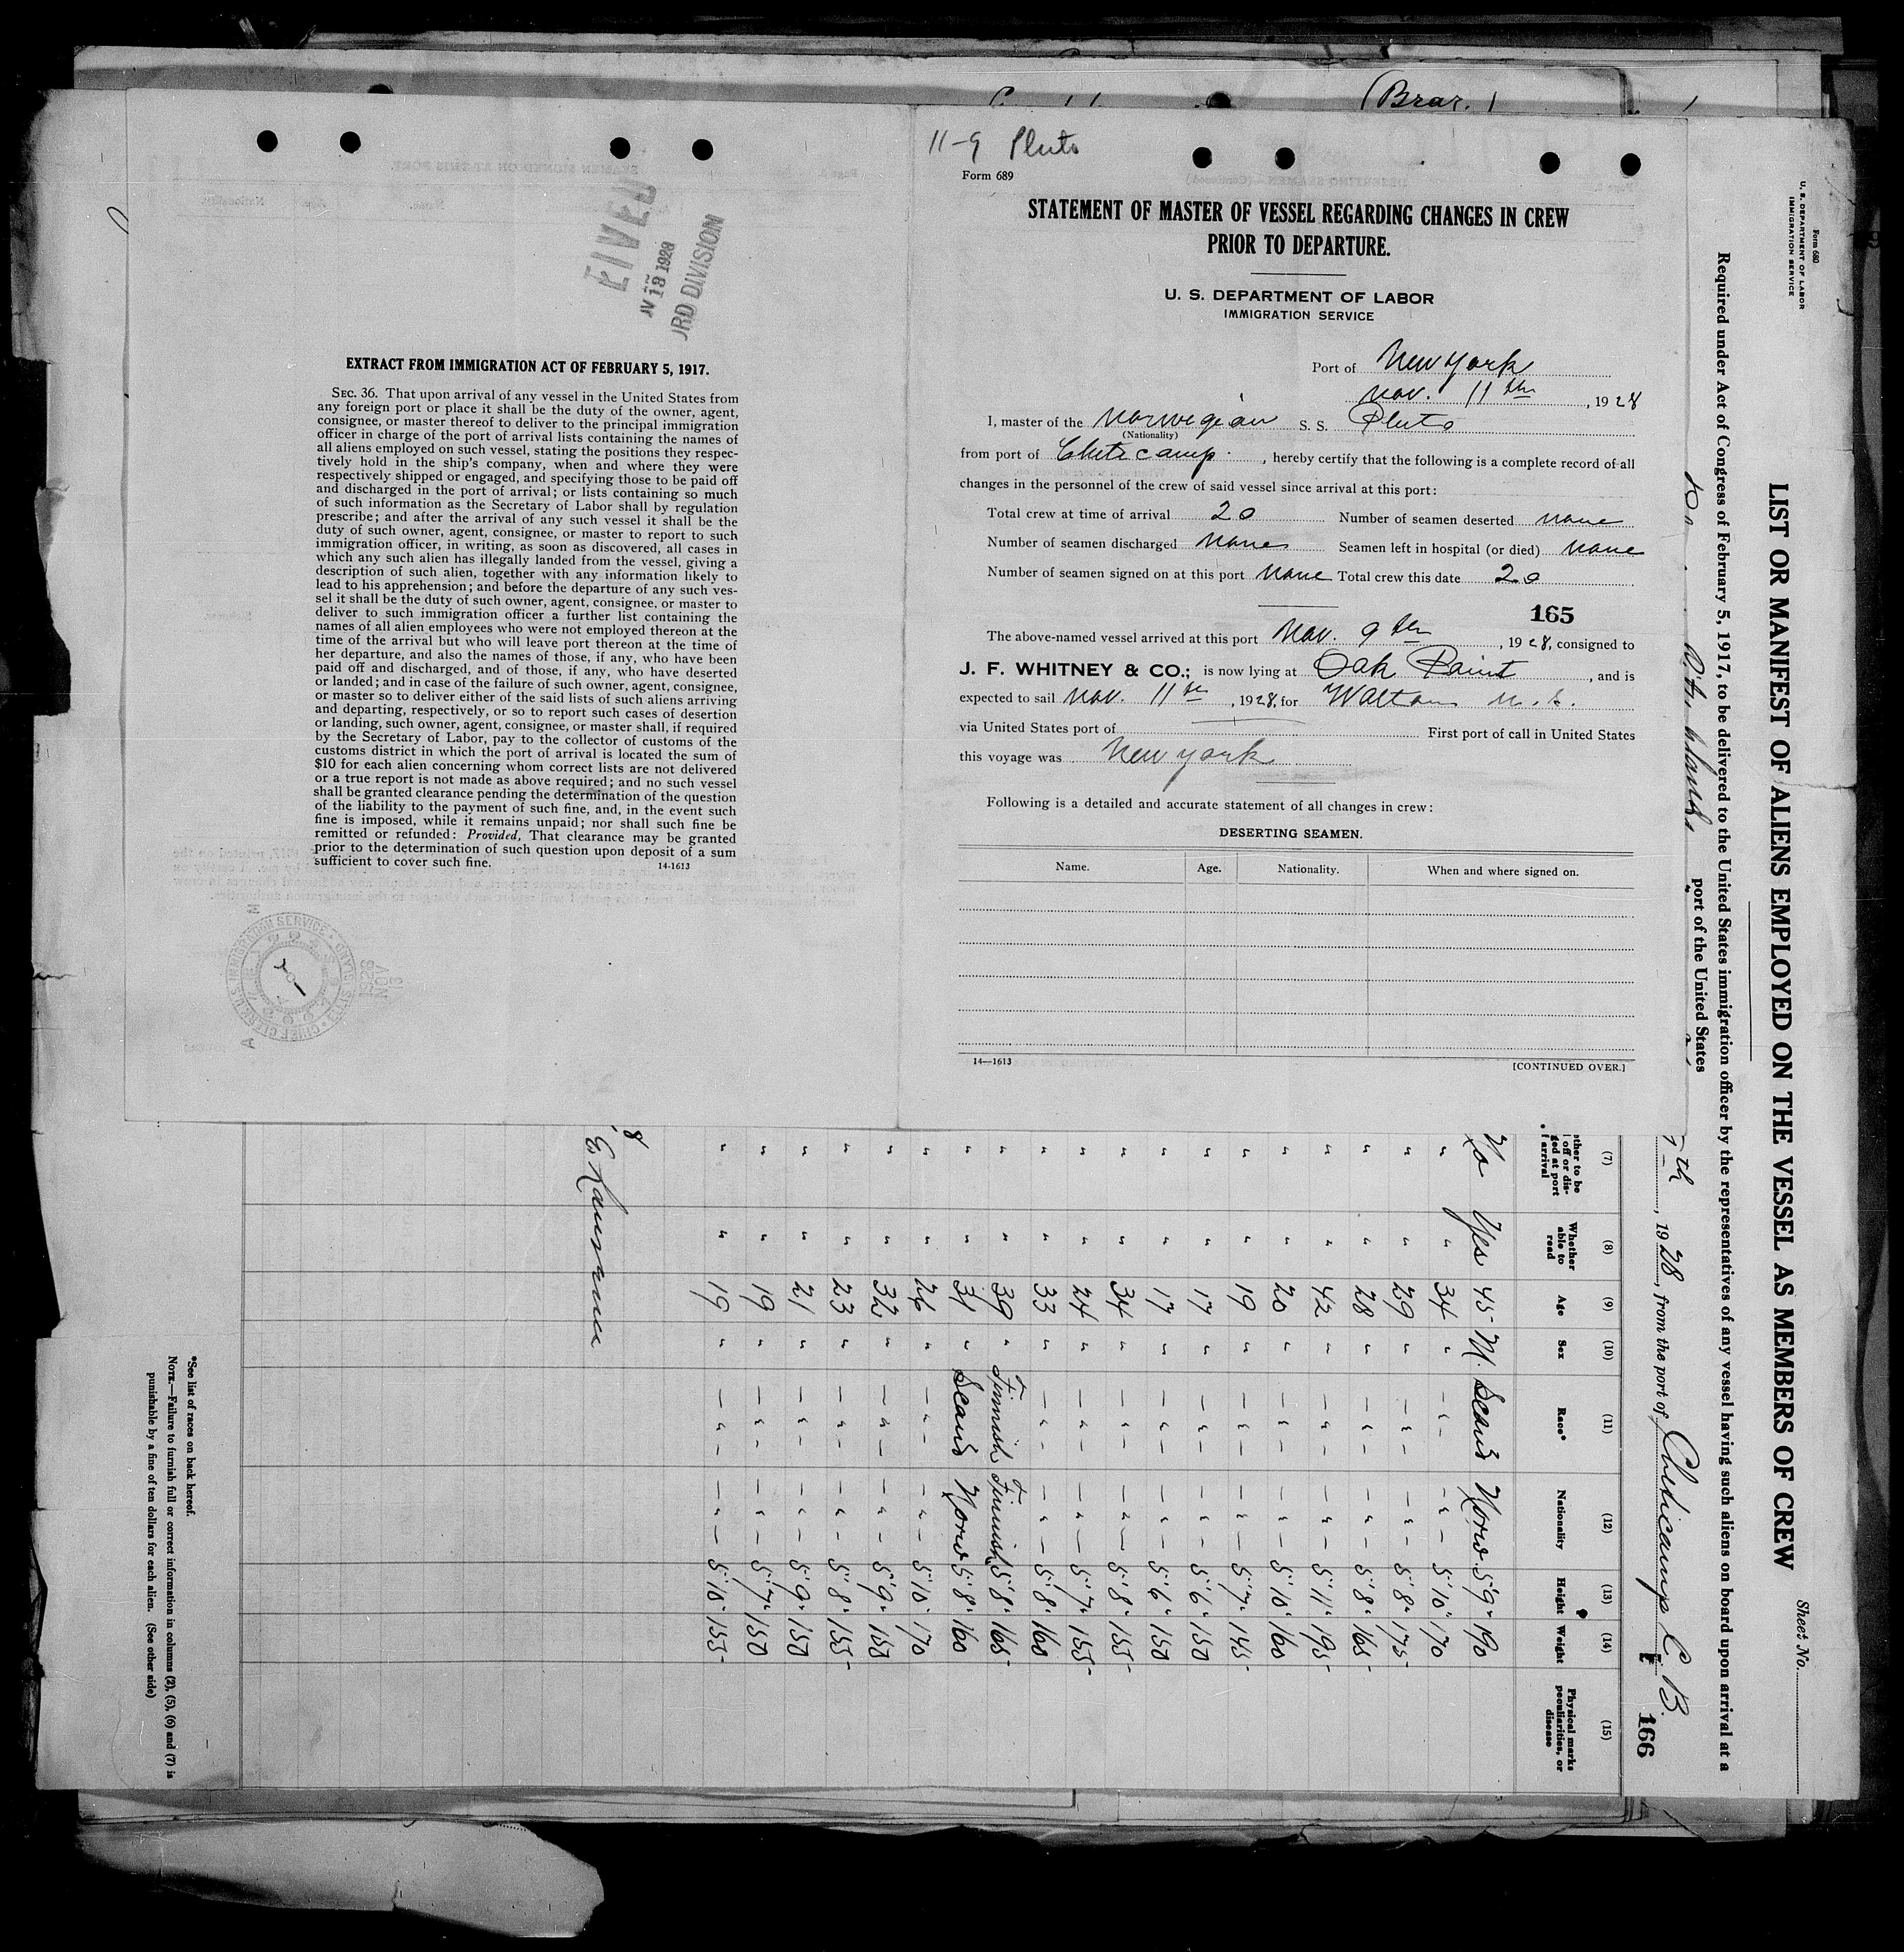 (Brar.)
EIVED
NV 13 1928
RD DIVISION
EXTRACT FROM IMMIGRATION ACT OF FEBRUARY 5, 1917.
SEC. 36. That upon arrival of any vessel in the United States from
any foreign port or place it shall be the duty of the owner, agent,
consignee, or master thereof to deliver to the principal immigration
officer in charge of the port of arrival lists containing the names of
all aliens employed on such vessel, stating the positions they respec-
tively hold in the ship's company, when and where they were
respectively shipped or engaged, and specifying those to be paid off
and discharged in the port of arrival; or lists containing so much
of such information as the Secretary of Labor shall by regulation
prescribe; and after the arrival of any such vessel it shall be the
duty of such owner, agent, consignee, or master to report to such
immigration officer, in writing, as soon as discovered, all cases in
which any such alien has illegally landed from the vessel, giving a
description of such alien, together with any information likely to
lead to his apprehension; and before the departure of any such ves-
sel it shall be the duty of such owner, agent, consignee, or master to
deliver to such immigration officer a further list containing the
names of all alien employees who were not employed thereon at the
time of the arrival but who will leave port thereon at the time of
her departure, and also the names of those, if any, who have been
paid off and discharged, and of those, if any, who have deserted
or landed; and in case of the failure of such owner, agent, consignee,
or master so to deliver either of the said lists of such aliens arriving
and departing, respectively, or so to report such cases of desertion
or landing, such owner, agent, consignee, or master shall, if required
by the Secretary of Labor, pay to the collector of customs of the
customs district in which the port of arrival is located the sum of
$10 for each alien concerning whom correct lists are not delivered
or a true report is not made as above required; and no such vessel
shall be granted clearance pending the determination of the question
of the liability to the payment of such fine, and, in the event such
fine is imposed, while it remains unpaid; nor shall such fine be
remitted or refunded: Provided, That clearance may be granted
prior to the determination of such question upon deposit of a sum
sufficient to cover such fine.
14-1613
11-9 Pluto
Form 689
STATEMENT OF MASTER OF VESSEL REGARDING CHANGES IN CREW
PRIOR TO DEPARTURE.
U. S. DEPARTMENT OF LABOR
IMMIGRATION SERVICE
Port of New York
Nov. 11th, 1928
I, master of the Norwegian S. S. Pluto
(Nationality)
from port of Cheticamp, hereby certify that the following is a complete record of all
changes in the personnel of the crew of said vessel since arrival at this port:
Total crew at time of arrival 20 Number of seamen deserted none
Number of seamen discharged none Seamen left in hospital (or died) none
Number of seamen signed on at this port none Total crew this date 20
165
The above-named vessel arrived at this port Nov. 9th, 1928, consigned to
J. F. WHITNEY & CO.; is now lying at Oak Point, and is
expected to sail Nov. 11th, 1928, for Walton N. S.
via United States port of First port of call in United States
this voyage was New York
Following is a detailed and accurate statement of all changes in crew:
DESERTING SEAMEN.
Name. Age. Nationality. When and where signed on.
14—1613
[CONTINUED OVER.]
Form 680
U. S. DEPARTMENT OF LABOR
IMMIGRATION SERVICE
Sheet No.
LIST OR MANIFEST OF ALIENS EMPLOYED ON THE VESSEL AS MEMBERS OF CREW
Required under Act of Congress of February 5, 1917, to be delivered to the United States immigration officer by the representatives of any vessel having such aliens on board upon arrival at a
port of the United States
th, 1928, from the port of Cheticamp C. B.
166
(7) (8) (9) (10) (11) (12) (13) (14) (15)
ther to be off or dis- ged at port arrival
Whether able to read
Age
Sex
Race*
Nationality
Height
Weight
Physical marks peculiarities, or disease
No Yes 45 M. Scand Norw. 5'9" 190
" " 34 " — " — — " — 5'10" 170
" " 29 " — " — — " — 5'8" 175
" " 28 " — " — — " — 5'8" 165
" " 42 " — " — — " — 5'11" 195
" " 20 " — " — — " — 5'10" 160
" " 19 " — " — — " — 5'7" 145
" " 17 " — " — — " — 5'6" 150
" " 17 " — " — — " — 5'6" 150
" " 34 " — " — — " — 5'8" 155
" " 24 " — " — — " — 5'7" 155
" " 33 " — " — — " — 5'8" 160
" " 39 " Finnish Finnish 5'8" 165
" " 31 " Scand Norw 5'8" 160
" " 26 " — " — — " — 5'10" 170
" " 32 " — " — — " — 5'9" 150
" " 23 " — " — — " — 5'8" 155
" " 21 " — " — — " — 5'9" 150
" " 19 " — " — — " — 5'7" 150
" " 19 " — " — — " — 5'10" 155
8
*See list of races on back hereof.
NOTE.—Failure to furnish full or correct information in columns (2), (5), (6) and (7) is
punishable by a fine of ten dollars for each alien. (See other side)